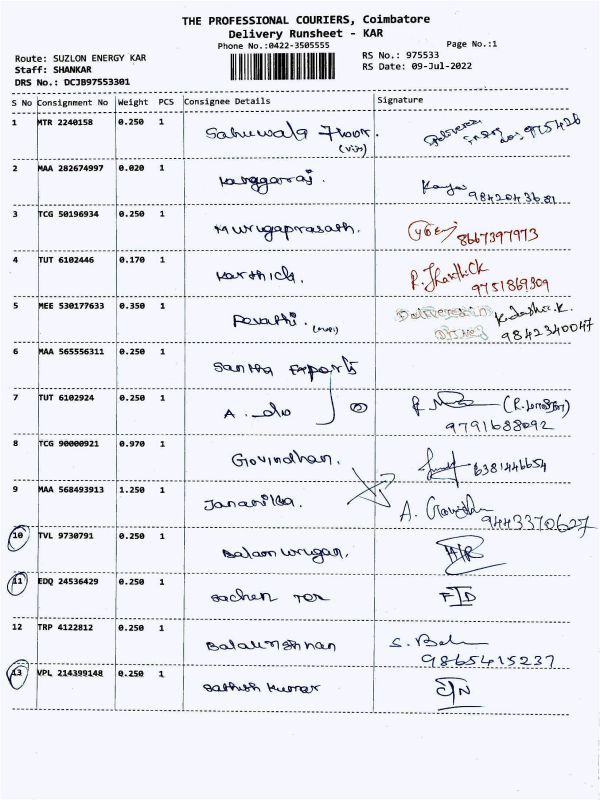 THE PROFESSIONAL COURIERS, Coimbatore
Delivery Runsheet - KAR
Phone No.:0422-3505555
Page No.:1
Route: SUZLON ENERGY KAR
RS No.: 975533
Staff: SHANKAR
RS Date: 09-Jul-2022
DRS No.: DCJB97553301
S No Consignment No Weight PCS Consignee Details Signature
1 MTR 2240158 0.250 1 Sahuwala Flour.
2 MAA 282674997 0.020 1
3 TCG 50196934 0.250 1 Murugaprasath. 8667397973
4 TUT 6102446 0.170 1 Karthick. 9751869309
5 MEE 530177633 0.350 1 Revathi. 9842340047
6 MAA 565556311 0.250 1 Santha Exports
7 TUT 6102924 0.250 1 A. do 2
9791688092
8 TCG 90000921 0.970 1 Govindhan. 6381446654
9 MAA 568493913 1.250 1 9443370627
10 TVL 9730791 0.250 1 Balamurugan.
11 EDQ 24536429 0.250 1 Sachen Tex
12 TRP 4122812 0.250 1 Balakrishnan
9865415237
13 VPL 214399148 0.250 1 Sathish Kumar